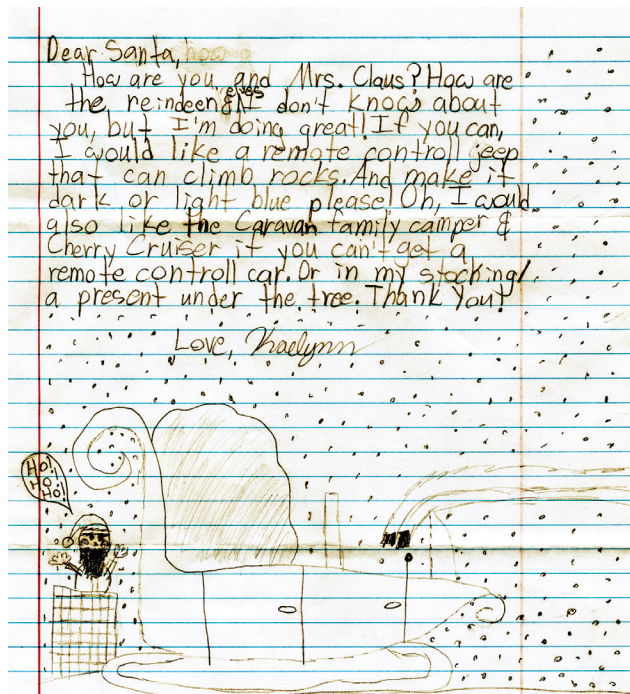 Dear Santa, how a
How are you and Mrs. Claus? How are
the reindeer & elves I don't know about
you, but I'm doing great! If you can,
I would like a remote controll jeep
that can climb rocks. And make it
dark or light blue please! Oh, I would
also like the Caravan family camper &
Cherry Cruiser if you can't get a
remote controll car. Or in my stocking/
a present under the tree. Thank You!
Love, Kaelynn
Ho!
Ho
Ho!